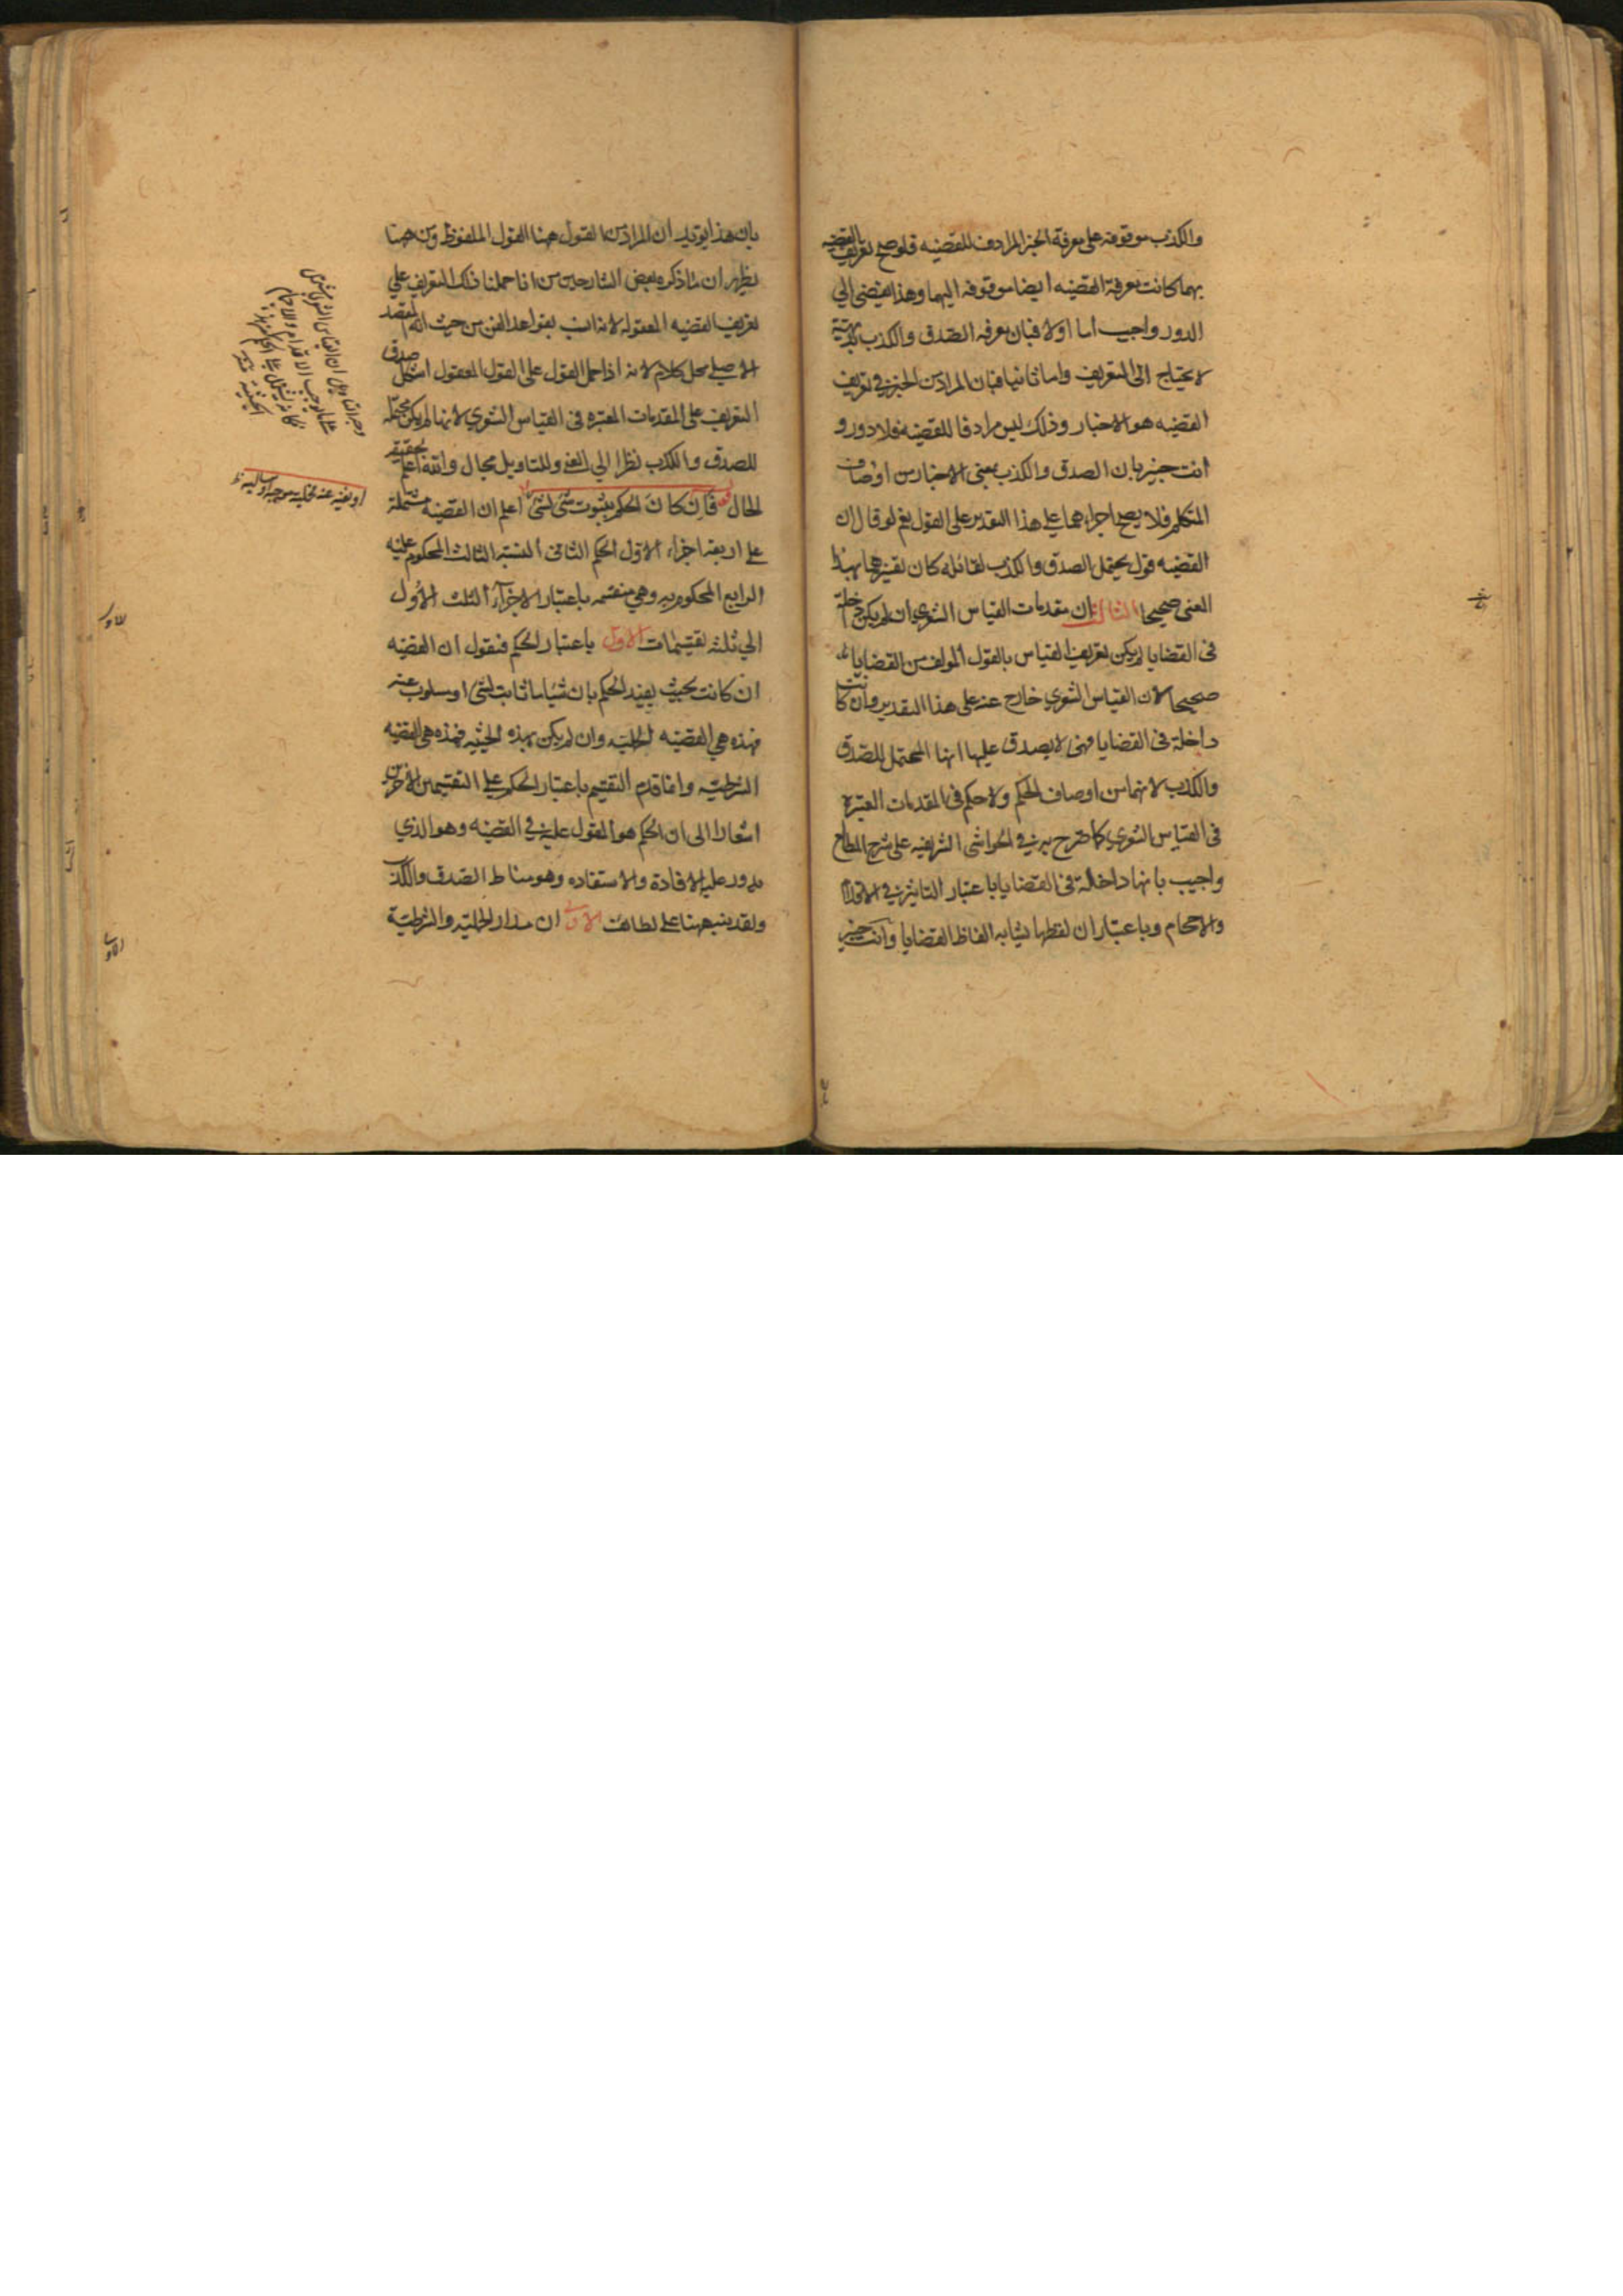 والكذب موقوفه على معرفة الخبر المرادف للقضيه فلو صح تعريف القضيه
بهما كانت معرفة القضيه ايضا موقوفه اليهما وهذا يفضى الى
الدور واجيب اما اولا فبان معرفه الصدق والكذب بديهية
لا يحتاج الى التعريف واما ثانيا فبان المراد من الخبر فى تعريف
القضيه هو الاخبار وذلك ليس مرادفا للقضيه فلا دور و
انت خبير بان الصدق والكذب بمعنى الاخبار من اوصاف
المتكلم فلا يصح اجراءهما على هذا التقدير على القول نعم لو قال ان
القضيه قول يحتمل الصدق والكذب لقائله كان تفسيرهما بهذا
المعنى صحيحا الثالث ان مقدمات القياس الشعرى ان لم يكن داخلة
فى القضايا لم يكن تعريف القياس بالقول المولف من القضايا
صحيحا لان القياس الشعرى خارج عنه على هذا التقدير وان كانت
داخلة فى القضايا فهى لا يصدق عليها انها المحتمل للصدق
والكذب لانهما من اوصاف الحكم ولا حكم فى المقدمات المعتبرة
فى القياس الشعرى كما صرح به فى الحواشى الشريفيه على شرح المطالع
واجيب بانها داخلة فى القضايا باعتبار التاثير فى الاقدام
والاحجام وباعتبار ان لفظها يشابه الفاظ القضايا وانت خبير
بان هذا يؤيد ان المراد من القول ههنا القول الملفوظ ومن ههنا
يظهر ان ما ذكره بعض الشارحين من انا حملنا ذلك التعريف على
تعريف القضيه المعقوله لانه انسب بقواعد الفن من حيث انه المقصد
الاصلى محل كلام لانه اذا حمل القول على القول المعقول اشكل صدق
التعريف على المقدمات المعتبره فى القياس الشعرى لانها لم يكن محتملة
للصدق والكذب نظرا الى المعنى وللتاويل مجال والله اعلم بحقيقة
الحال قوله فان كان الحكم بثبوت شئ لشئ اعلم ان القضيه مشتملة
على اربعه اجزاء الاول الحكم الثانى النسبه الثالث المحكوم عليه
الرابع المحكوم به وهى منقسمه باعتبار الاجزاء الثلث الاول
الى ثلثه تقسيمات الاول باعتبار الحكم فنقول ان القضيه
ان كانت بحيث يفيد الحكم بان شيئا ما ثابت لشئ او مسلوب عنه
فهذه هى القضيه الحمليه وان لم يكن بهذه الحيثيه فهذه هى القضيه
الشرطيه وانما قدم التقسيم باعتبار الحكم على التقسيمين الاخرين
اشعارا الى ان الحكم هو المقول عليه فى القضيه وهو الذى
يدور عليه الافادة والاستفاده وهو مناط الصدق والكذب
ولقد ينبه ههنا على لطائف الاولى ان مدار الحمليه والشرطية
او نفيه عنه فحمليه موجبه او سالبه